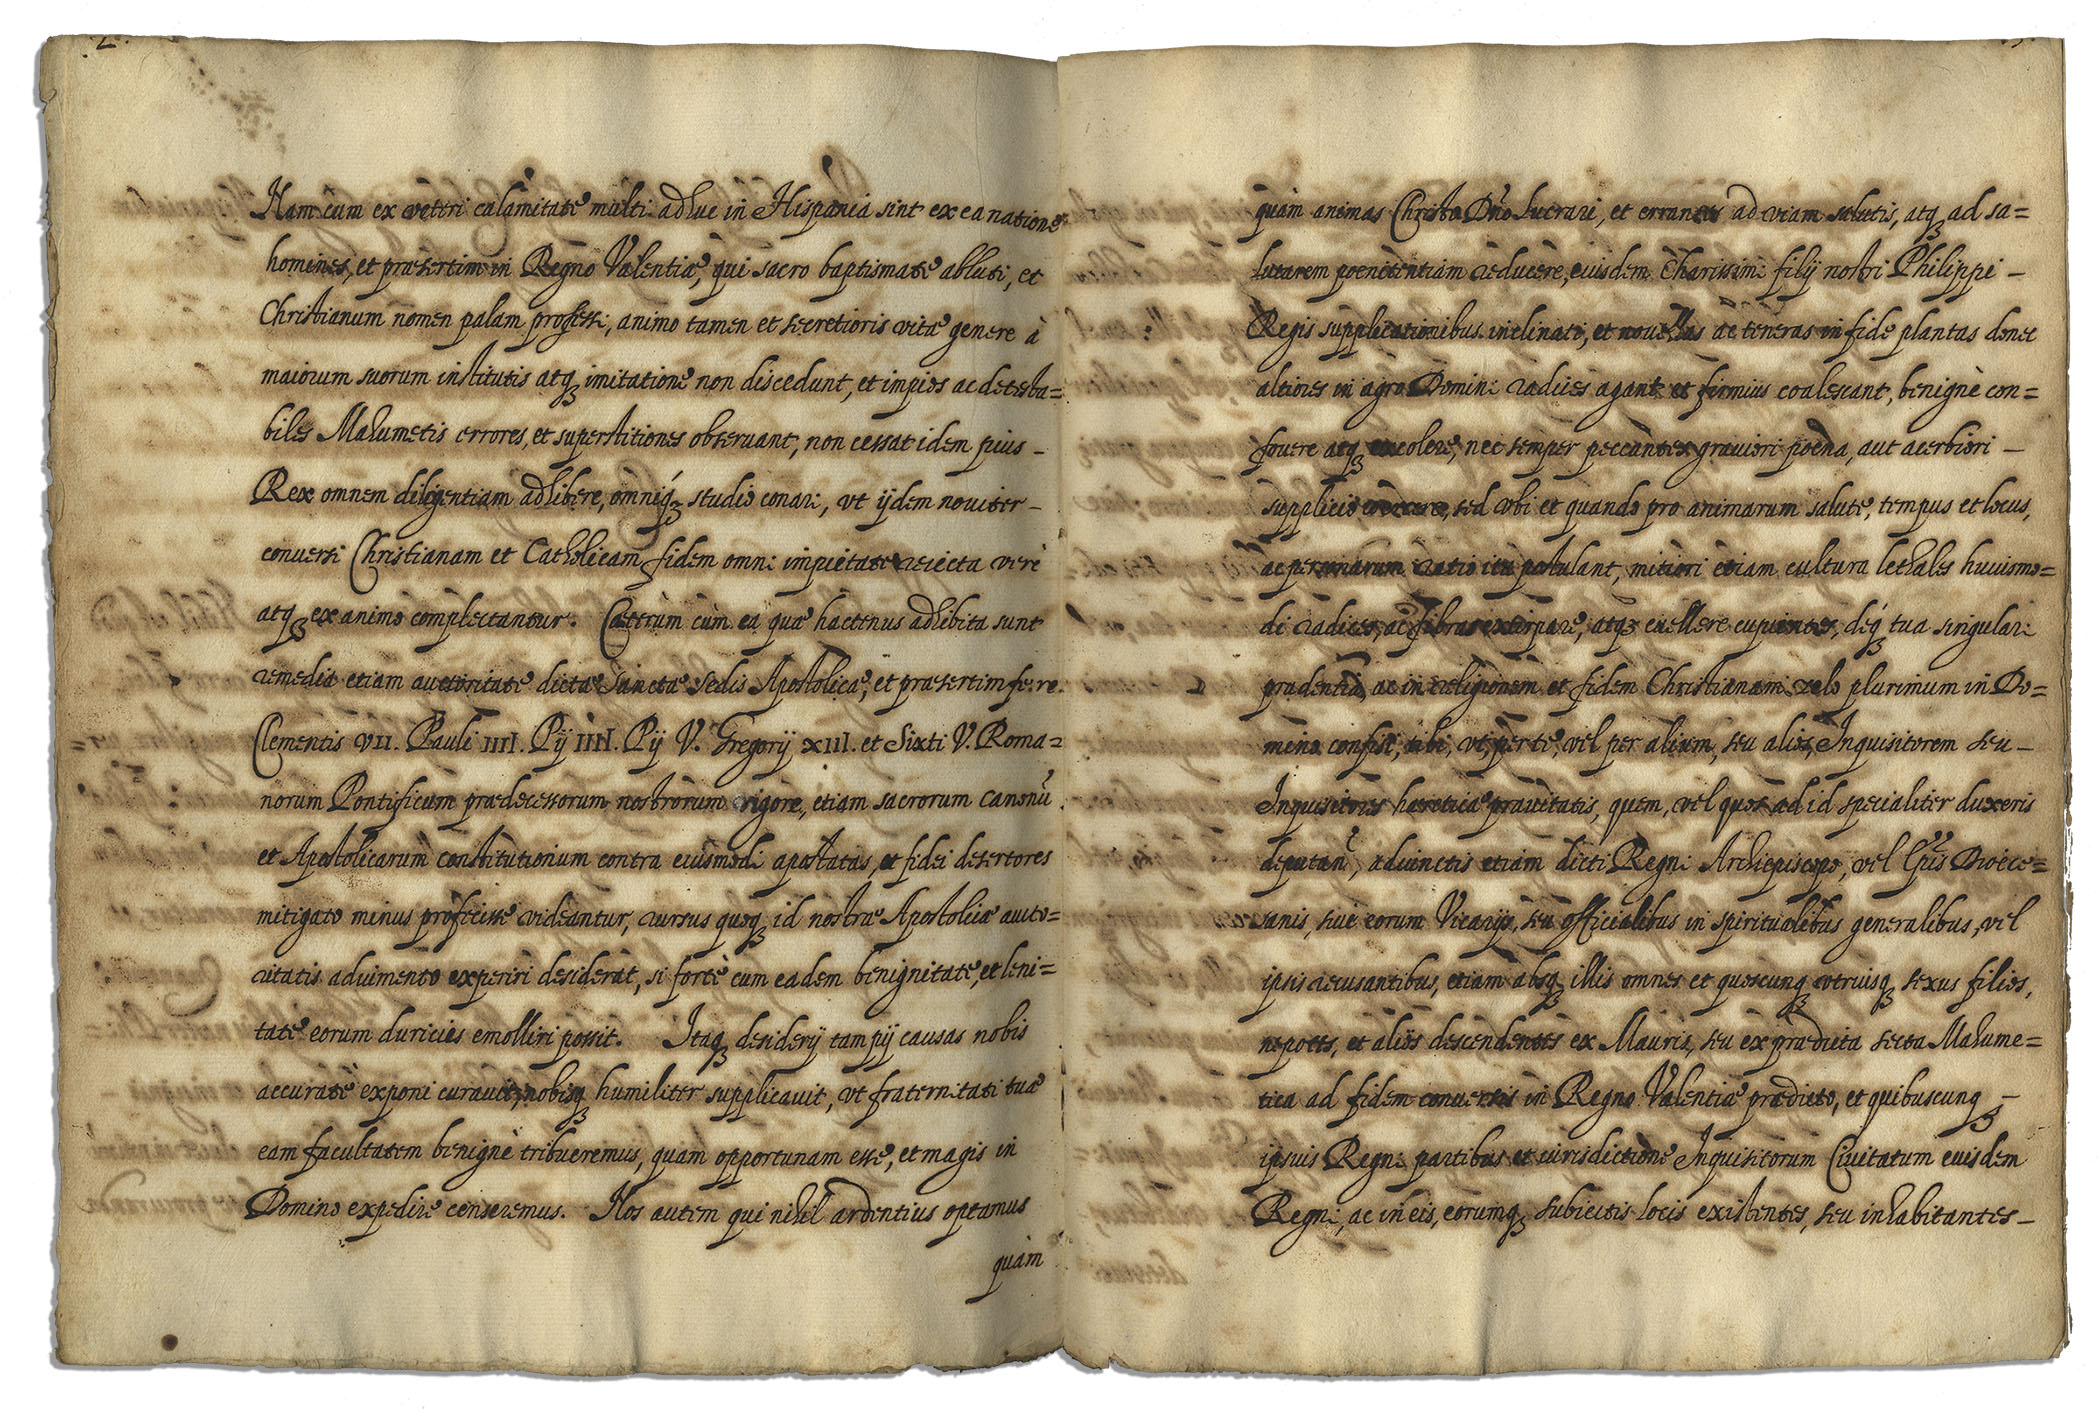 2.
Nam cum ex veteri calamitate multi adhuc in Hispania sint ex ea natione
homines, et præsertim in Regno Valentiæ, qui sacro baptismate abluti, et
Christianum nomen palam professi, animo tamen et secretioris vitæ genere à
maiorum suorum institutis atq; imitatione non discedunt, et impios ac detesta=
biles Mahumetis errores, et superstitiones observant, non cessat idem pius _
Rex omnem diligentiam adhibere, omniq́; studio conari, vt ijdem noviter _
conversi Christianam et Catholicam fidem omni impietate reiecta verè
atq; ex animo complectantur. Cæterùm cùm ea quæ hactenus adhibita sunt
remedia etiam auctoritate dictæ Sanctæ Sedis Apostolicæ, et præsertim fe: re:
Clementis VII. Pauli IIII. Pij IIII. Pij V. Gregorij XIII. et Sixti V. Roma=
norum Pontificum prædecessorum nostrorum rigore, etiam sacrorum canonũ
et Apostolicarum constitutionum contra eiusmodi apostatas, et fidei desertores
mitigato minus profecisse videantur, rursus quoq; id nostræ Apostolicæ aucto=
ritatis adiumento experiri desiderat, si fortè cum eadem benignitate, et leni=
tate eorum duricies emolliri possit. Itaq; desiderij tam pij causas nobis
accuratè exponi curavit, nobisq; humiliter supplicavit, vt fraternitati tuæ
eam facultatem benignè tribueremus, quam opportunam esse, et magis in
Domino expedire censeremus. Nos autem qui nihil ardentius optamus
quàm
quàm animas Christo Dño lucrari, et errantes ad viam salutis, atq; ad sa=
lutarem poenitentiam reducere, eiusdem Charissimi filij nostri Philippi _
Regis supplicationibus inclinati, et novellas ac teneras in fide plantas donec
altiores in agro Domini radices agant et firmius coalescant, benignè con=
fovere atq; excolere, nec semper peccantes graviori poena, aut acerbiori _
supplicio coercere, sed vbi et quando pro animarum salute, tempus et locus,
ac personarum ratio ita postulant, mitiori etiam cultura lethales huiusmo=
di radices, ac fibras extirpare, atq; evellere cupientes, deq́; tua singulari
prudentia, ac in religionem et fidem Christianam zelo plurimum in Do=
mino confisi, tibi, vt per te, vel per alium, seu alios, Inquisitorem seu _
Inquisitores hæreticæ pravitatis, quem, vel quos ad id specialiter duxeris
deputanđ, adiunctis etiam dicti Regni Archiepiscopo, vel Epis Dioece=
sanis, sive eorum Vicarijs, seu officialibus in spiritualibus generalibus, vel
ipsis recusantibus, etiam absq; illis omnes et quoscunq; vtriusq; sexus filios,
nepotes, et alios descendentes ex Mauris, seu ex prædicta secta Mahume=
tica ad fidem conversis in Regno Valentiæ prædicto, et quibuscunq; _
ipsius Regni partibus et iurisdictione Inquisitorum Civitatum eiusdem
Regni, ac in eis, eorumq; subiectis locis existentes, seu inhabitantes _